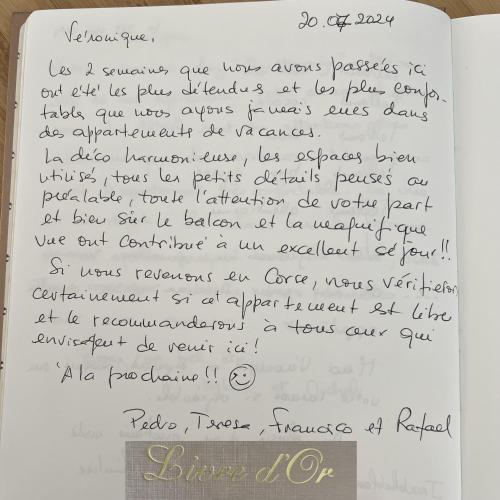 20.07 2024
Véronique,
Les 2 semaines que nous avons passées ici
ont été les plus détendues et les plus confor-
tables que nous ayons jamais eues dans
des appartements de vacances.
La déco harmonieuse, les espaces bien
utilisés, tous les petits détails pensés au
préalable, toute l'attention de votre part
et bien sûr le balcon et la magnifique
vue ont contribué à un excellent séjour!!
Si nous revenons en Corse, nous vérifierons
certainement si cet appartement est libre
et le recommanderons à tous ceux qui
envisagent de venir ici!
A la prochaine!! ☺
Pedro, Teresa, Francisco et Rafael
Livre d'Or